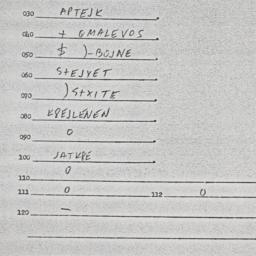 030 APTEJK
040 + GMALEVOS
050 $ )-BOJNE
060 STEJYET
070 )STXITE
080 KPEJLENEN
090 0
100 JATKPE
110 0
111 0 112 0
120 —